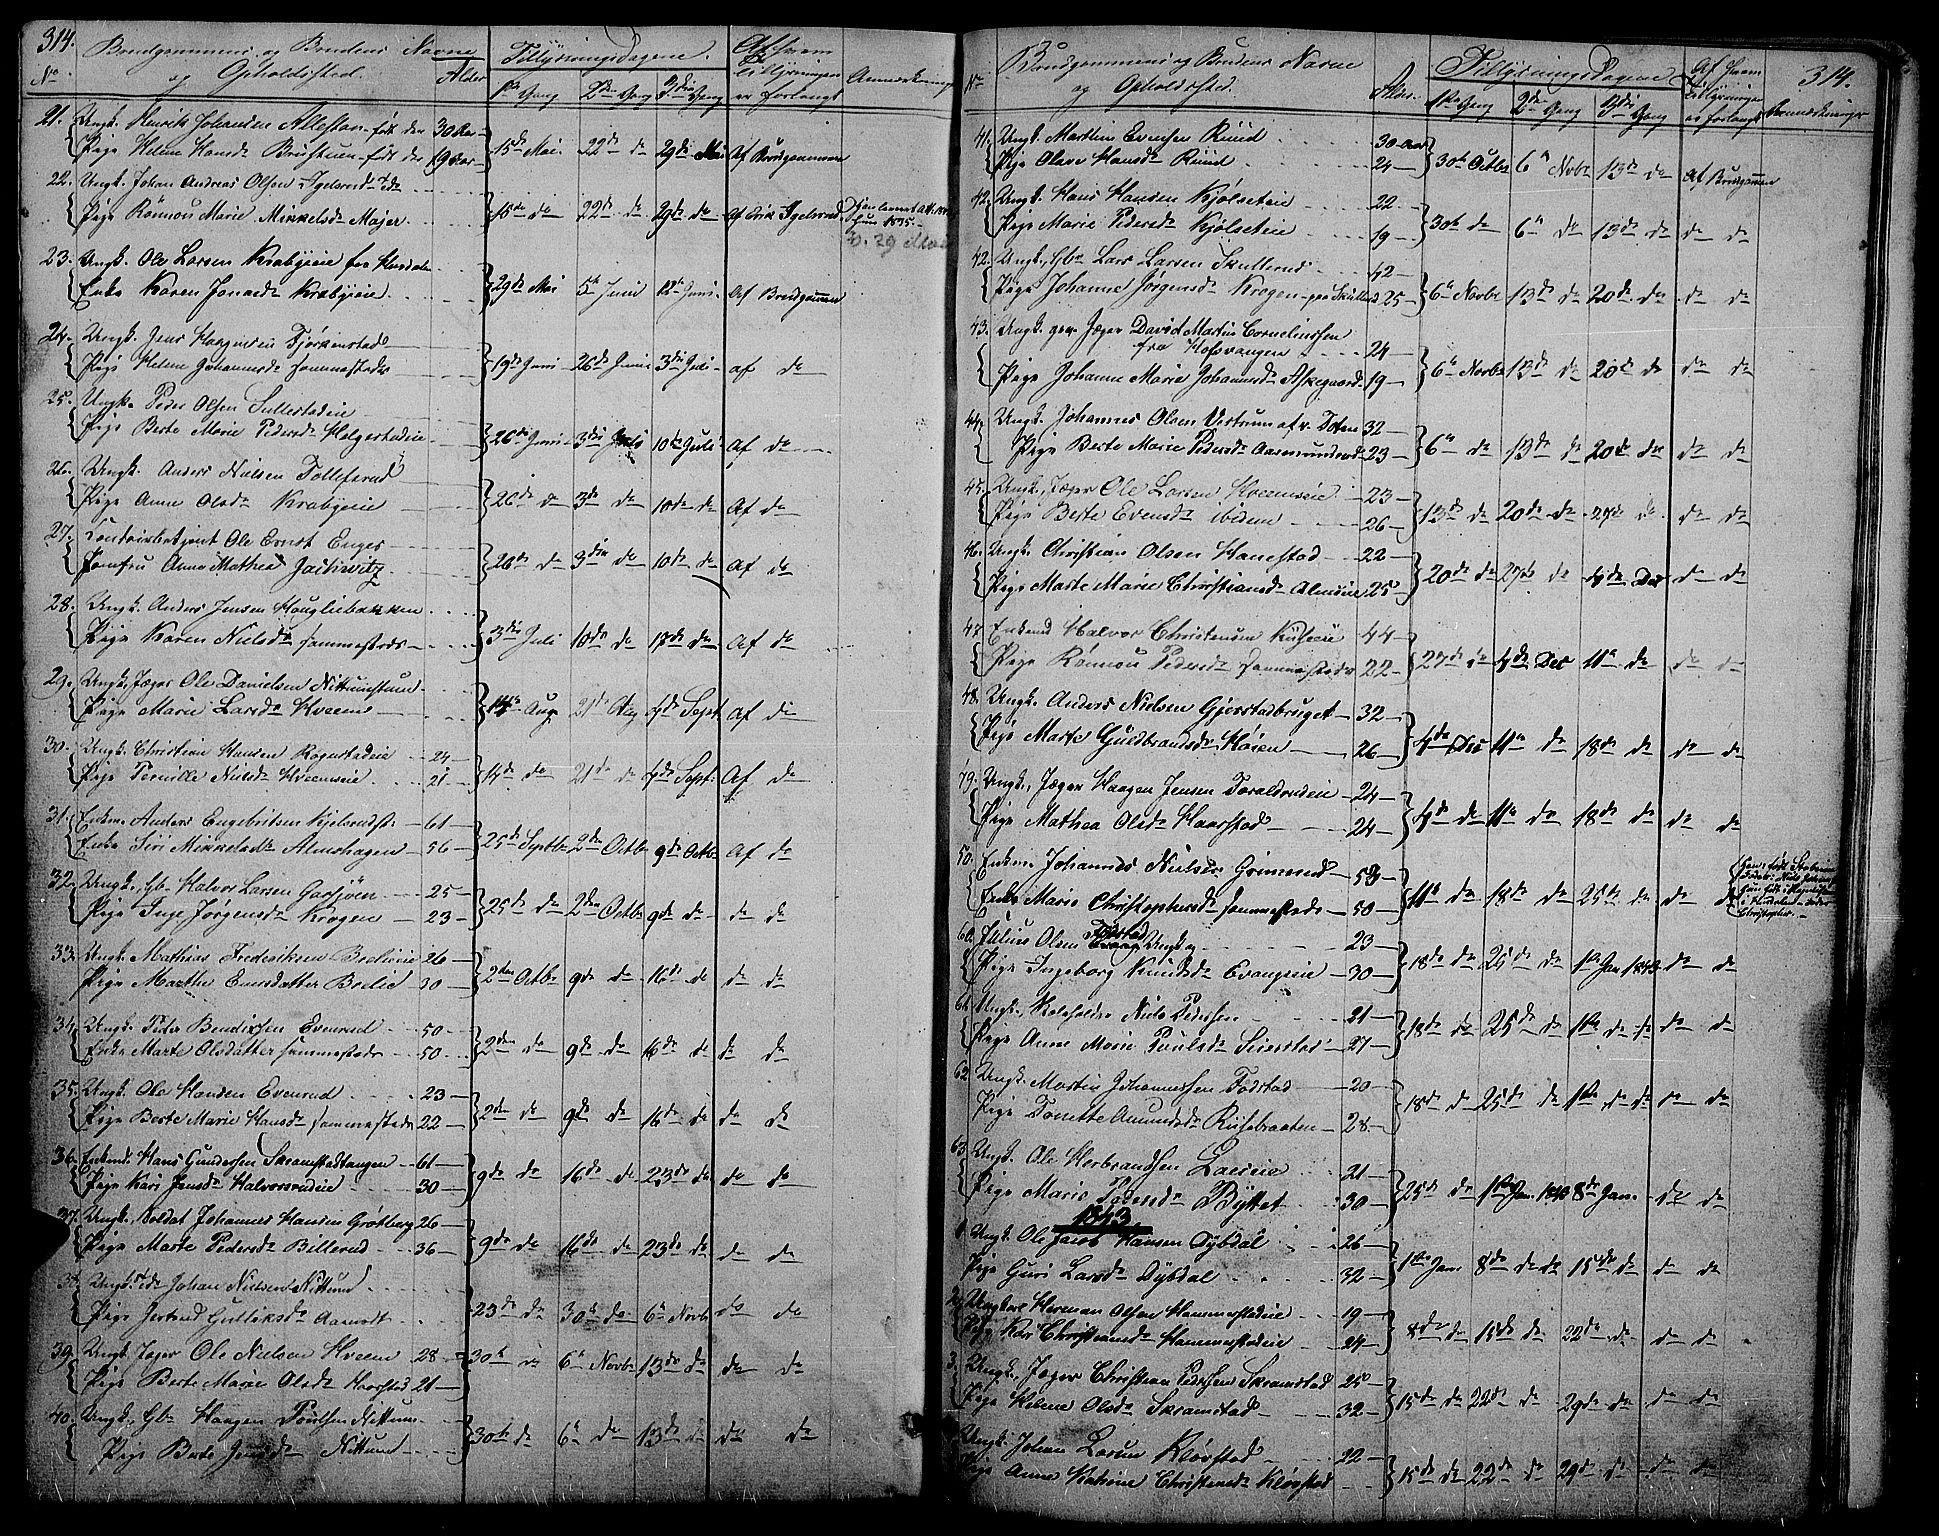 314.
Brudgommens og Brudens Navne
og Opholdssted.
No
Alder
Tillysningsdagene.
1ste Gang 2den Gang 3die Gang
Af hvem Tillysningen er forlangt
Anmærkning
21. Ungk. Henrik Johansen født den 30 Aar
Pige Helene Hansdr Brustuen født der 19 Aar
15de Mai 22de do 29de Mai Af Brudgommen
22. Ungk. Johan Andreas Olsen
Pige Rønnou Marie Mikkelsdr Majer
15de do 22de do 29de do
23. Ungk. Ole Larsen Krabyeie fra Hurdalen
Enke Karen Jonsdr Krabyeie
29de Mai 5te Juni 12te Juni Af Brudgommen
24. Ungk. Jens Haagensen
Pige Helene Johannesdr sammesteds
19de Juni 26de Juni 3die Juli af do
25. Ungk. Peder Olsen Sullestadeie
Pige Berte Marie Pedersdr Holgerstadeie
26de Juni 3die Juli 10de Juli Af do
26. Ungk. Anders Nielsen Tollefsrud
Pige Anne Olsdr Krabyeie
26de do 3die do 10de do Af do
27. Contoirbetjent Ole Ernst Enger
Jomfru Anne Mathea
26de do 3die do 10de do Af do
28. Ungk. Anders Jensen Haugliebakken
Pige Karen Nielsdr sammesteds
3die Juli 10de do 17de do Af do
29. Ungk. Jæger Ole Danielsen Nettumstuen
Pige Marie Larsdr Kveem
14de Aug 21de Aug 4de Sept Af do
30. Ungk. Christian Hansen Rognstadeie 24
Pige Pernille Nielsdr Kveemeie 21
14de do 21de do 4de Sept. Af do
31. Enkem. Anders Engebritsen 61
Enke Siri Mikkelsdr Almshagen 56
25de Septbr 2den Octb 9de Octbr Af do
32. Ungk. Gb. Halvor Larsen Garsjøen 25
Pige Inge Jørgensdr Krogen 23
25de do 2den Octb 9de do do do
33. Ungk. Mathias Frederiksen 26
Pige Marthe Evensdatter 30
2den Octbr 9de do 16de do do do
34. Ungk. Peder Bendixsen Evenrud 50
Enke Marte Olsdatter sammesteds 50
2den do 9de do 16de do do do
35. Ungk. Ole Hansen Evenrud 23
Pige Berte Marie Hansdr sammesteds 22
2den do 9de do 16de do do do
36. Enkemd. Hans Gundersen Skramstadhagen 61
Pige Kari Jensdr Halvorsrudeie 30
9de do 16de do 23de do do do
37. Ungk. Soldat Johannes Hansen Grøtberg 26
Pige Marte Pedersdr Billerud 36
9de do 16de do 23de do do do
38. Ungk. Johan Nielsen Nettum
Pige Jertrud Gulliksdr Aamodt
23de do 30te do 6te Novbr do do
39. Ungk. Jæger Ole Nielsen Kveem 28
Pige Berte Marie Olsdr Haarstad 21
30te do 6te Novbr 13de do do do
40. Ungk. Gb. Haagen Poulsen Nettum
Pige Berte Jensdr Nettum
30te do 6te do 13de do do do
314.
No
Brudgommens og Brudens Navne
og Opholdssted.
Alder.
Tillysnings Dagene
1ste Gang 2den Gang 3die Gang
Af hvem Tillysningen er forlangt
Anmærkninger
41. Ungk. Martin Evensen Ruud 30 Aar
Pige Oleve Hansdr Ruud 24
30te Octbr 6te Novbr 13de do Af Brudgommen
42. Ungk. Hans Hansen Kjølseteie 22
Pige Marie Pedersdr Kjølseteie 19
30te do 6te do 13de do do do
42. Ungk. Gbr Lars Larsen Skullerud 42
Pige Johanne Jørgensdr Krogen paa Skullerud 25
6te Novbr 13de do 20de do do do
43. Ungk. gev. Jæger David Martin Corneliussen
fra Hofsvangen 24
Pige Johanne Marie Johannesdr Askegaard 19
6te Novbr 13de do 20de do do do
44. Ungk. Johannes Olsen Vestrum af v. Toten 32
Pige Berte Marie Pedersdr Aasmundsrud 23
6te do 13de do 20de do do do
45. Ungk. Jæger Ole Larsen Kveemeie 23
Pige Berte Evensdr ibidem 26
13de do 20de do 27de do do do
46. Ungk. Christian Olsen Hanestad 22
Pige Marte Marie Christiansdr Almeie 25
20de do 27de do 4de Dec do do
47. Enkemd Halvor Christensen Ruseie 44
Pige Rønnou Pedersdr sammesteds 22
27de do 4de Dec 11te do do do
48. Ungk. Anders Nielsen Gjerstadbruget 32
Pige Marte Guldbrandsdr Køien 26
4de Dec 11te do 18de do do do
49. Ungk. Jæger Haagen Jensen Toraldrudeie 24
Pige Mathea Olsdr Haarstad 24
4de do 11te do 18de do do do
50. Enkem. Johannes Nielsen Grimsrud 53
Enke Marie Christophersdr sammesteds 50
11te do 18de do 25de do do do
60. Julius Olsen Fodstad Ungk. 23
Pige Ingeborg Knudsdr Evangeie 30
18de do 25de do 1ste Jan 1843 do do
61. Ungk. Skoleholder Niels Pedersen 21
Pige Anne Marie Poulsdr Seierstad 27
18de do 25de do 1ste do do do do
62. Ungk. Martin Johannessen Fodstad 20
Pige Tonette Amundsdr Rusebraaten 28
18de do 25de do 1ste do do do do
63. Ungk. Ole Herbrandsen Laeseie 21
Pige Marie Pedersdr Byttet 30
25de do 1ste Jan. 1843 8de Jan. do do
1843
1. Ungk. Ole Jacob Hansen Dybdal 26
Pige Guri Larsdr Dybdal 32
1ste Jan 8de do 15de do do do
2. Ungkarl Herman Olsen Hammerstadeie 19
Pige Kari Christiansdr Hammerstadeie 24
8de do 15de do 22de do do do
3. Ungk. Jæger Christian Pedersen Skramstad 25
Pige Helene Olsdr Skramstad 32
15de do 22de do 29de do do do
Ungk. Johan Larsen Kløvstad 22
Pige Anne Katrine Christensdr Kløvstad
15de do 22de do 29de do do do